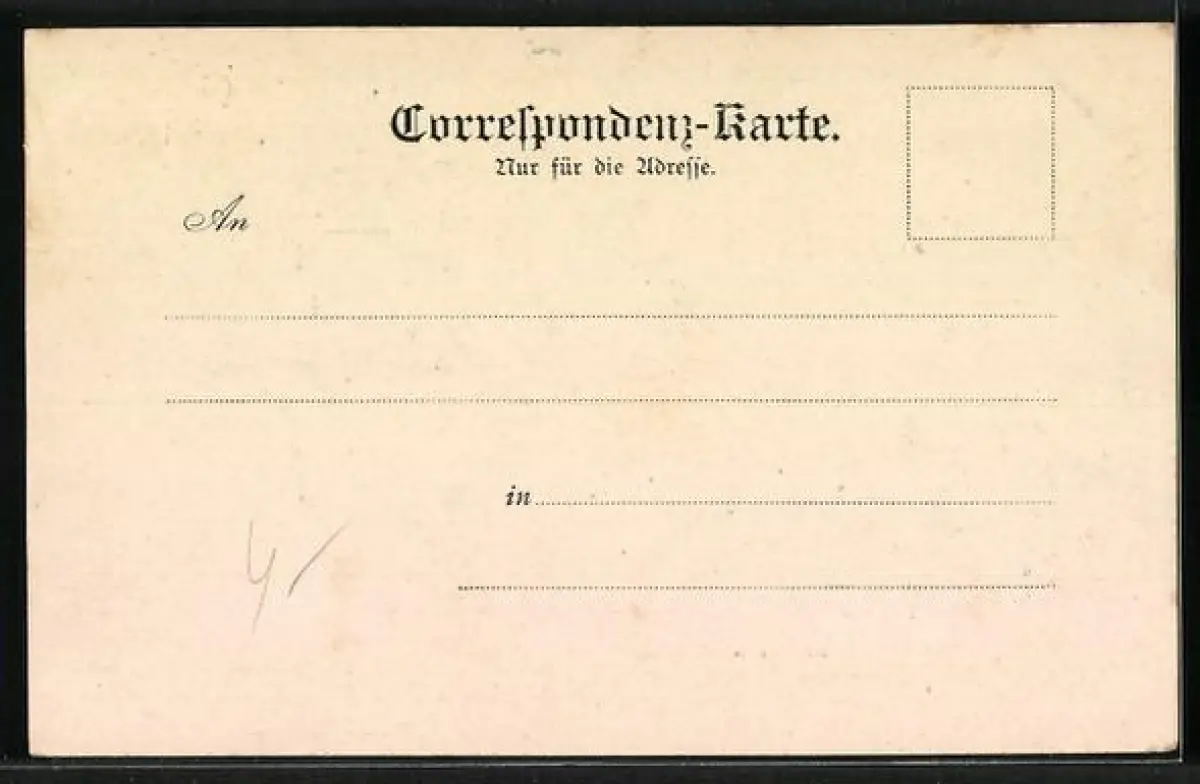 Correſpondenz-Karte.
Nur für die Adreſſe.
An
in
4